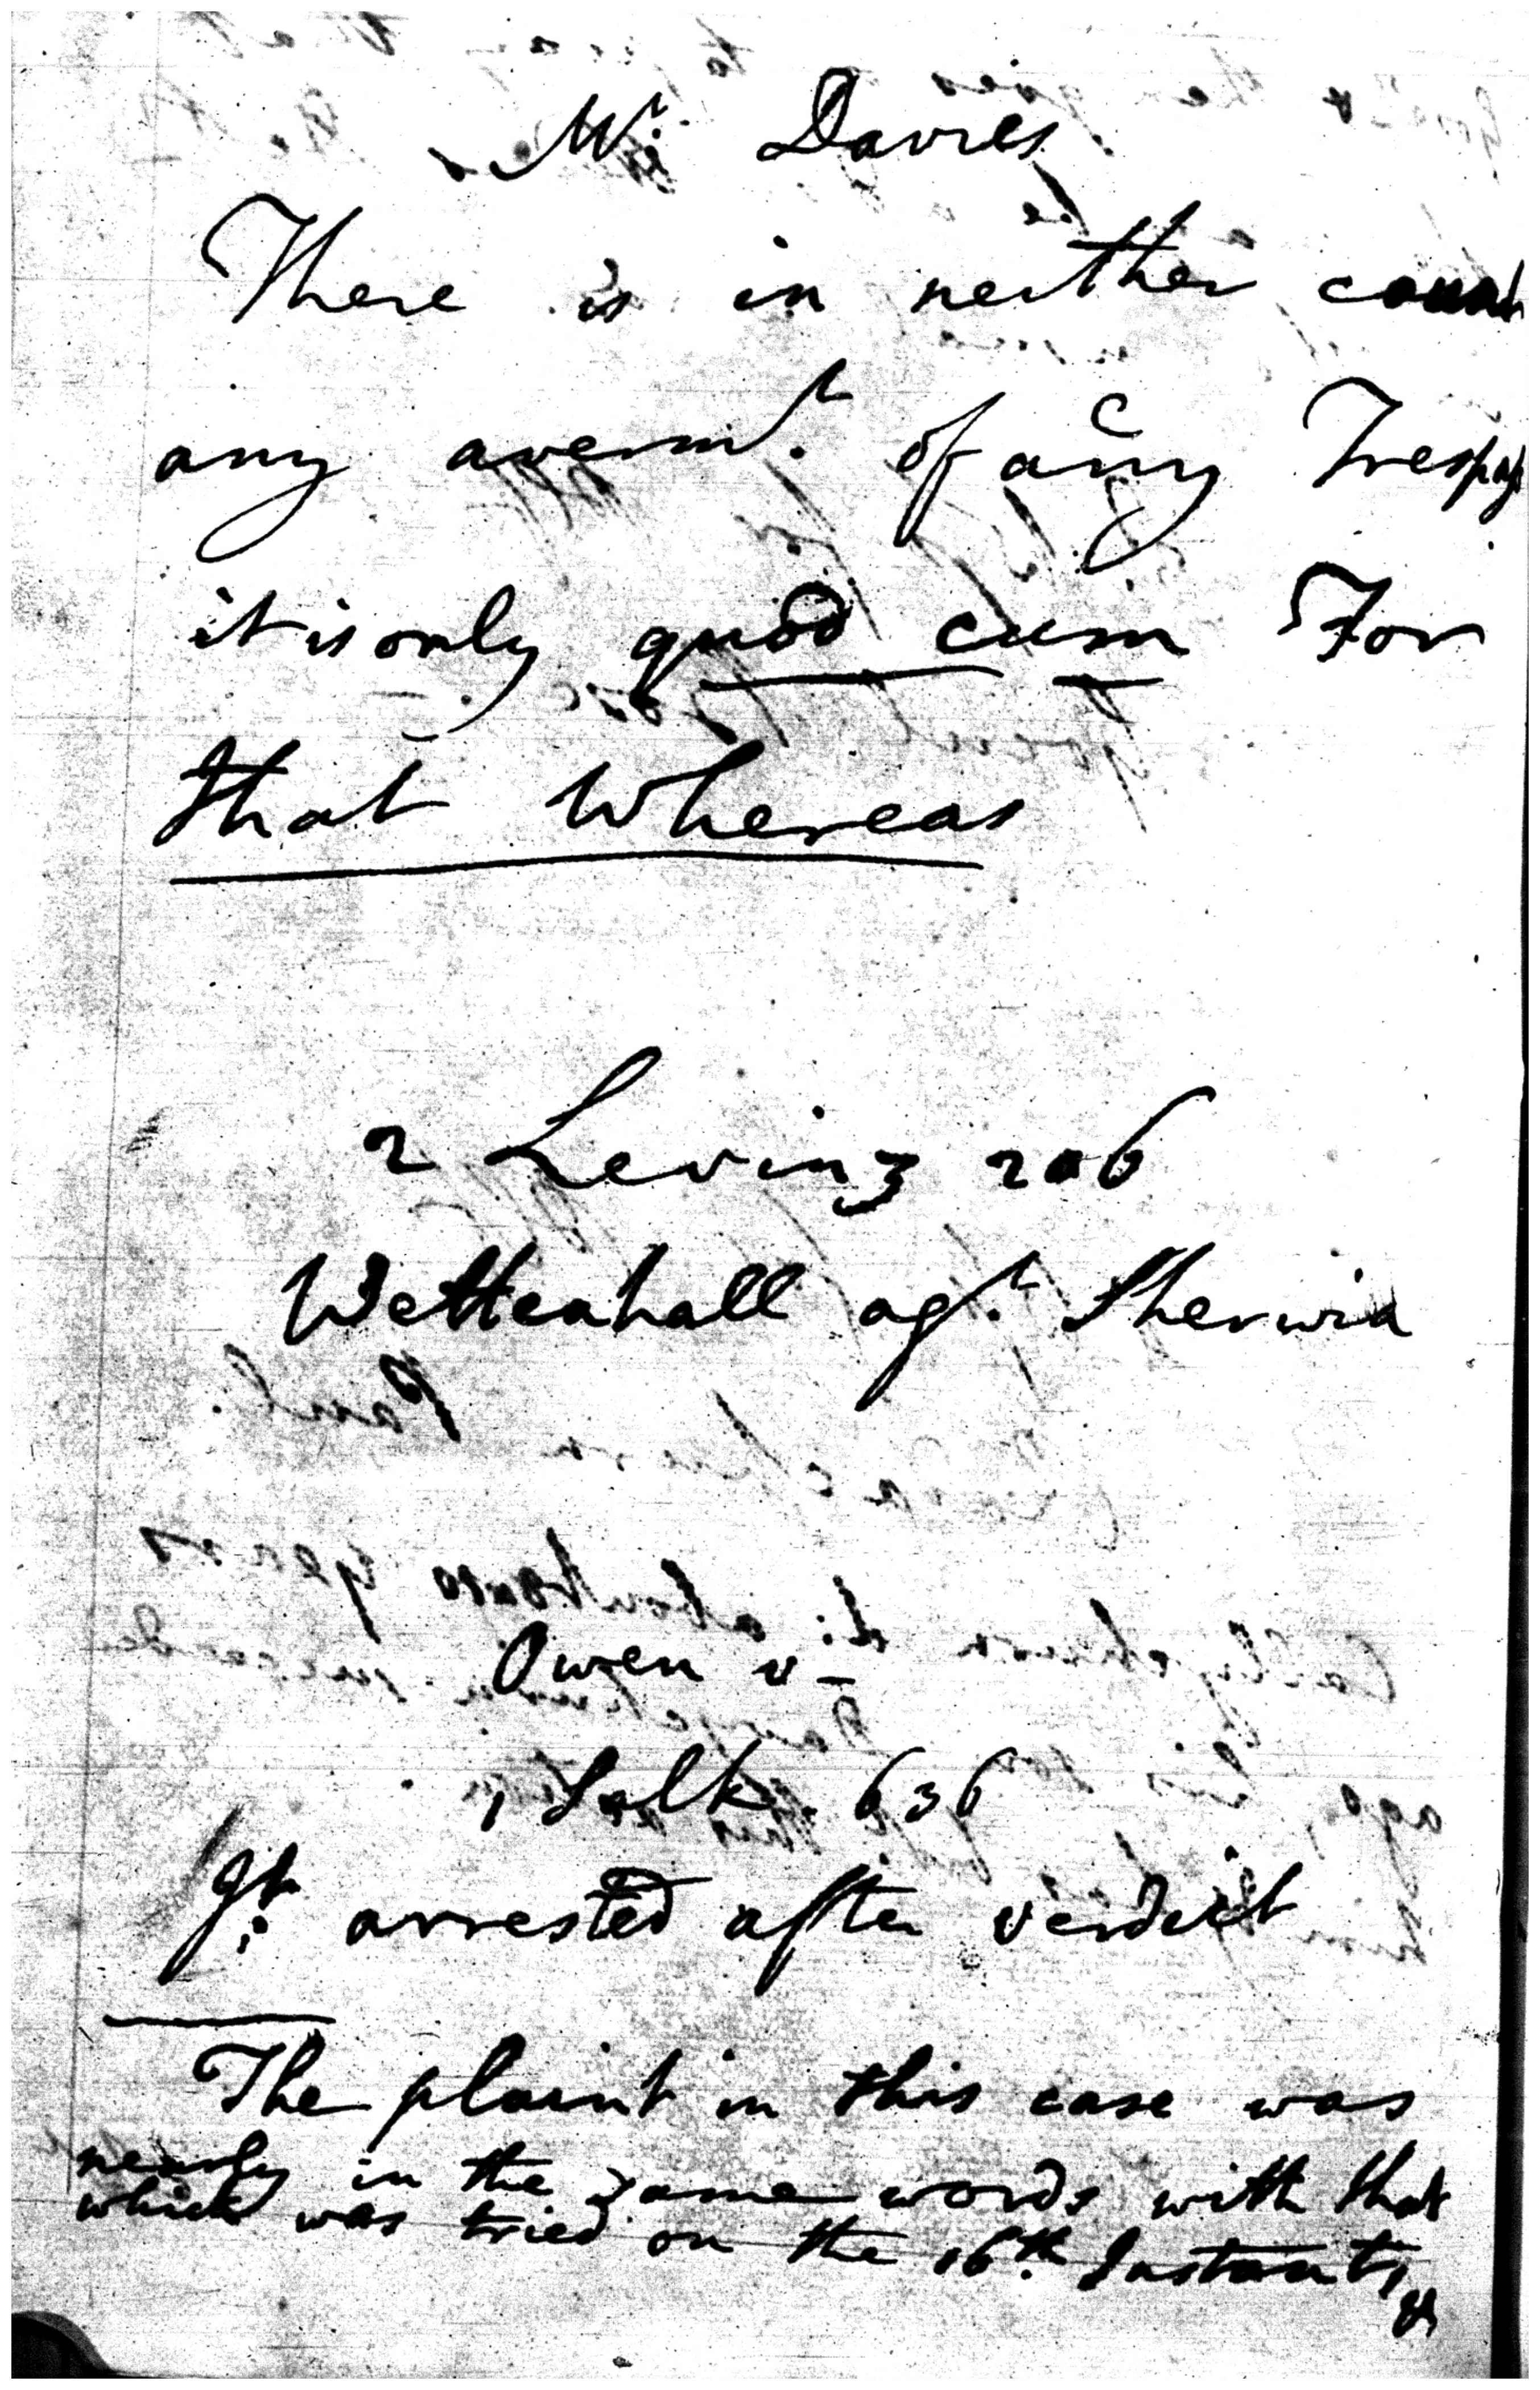 Mr. Davies
There is in neither count
any averm.t of any Trespass
it is only quod cum For
that Whereas
2 Levinz 206
Wettenhall ag.t Sherwin
Owen v
1 Salk. 636
Jt. arrested after verdict
The plaint in this case was
nearly in the same words with that
which was tried on the 16th Instant,